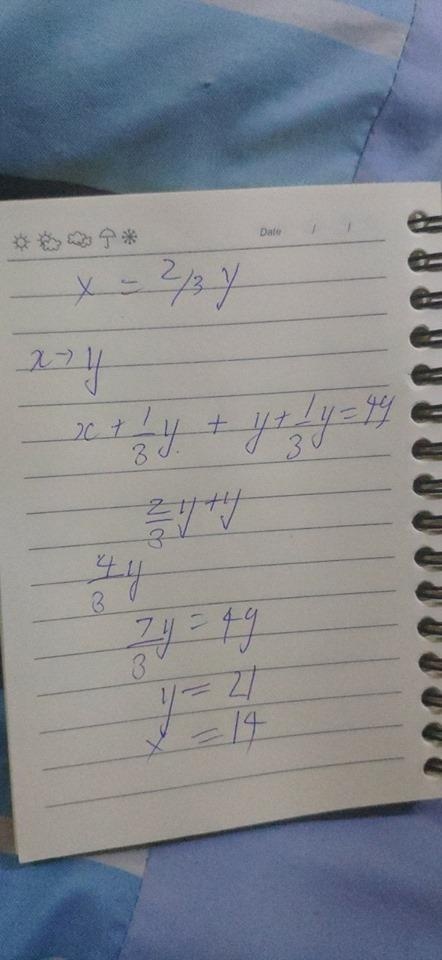 Date / /
x = 2/3 y
x → y
x + 1/3 y + y + 1/3 y = 49
2/3 y + y
4/3 y
7/3 y = 49
y = 21
x = 14